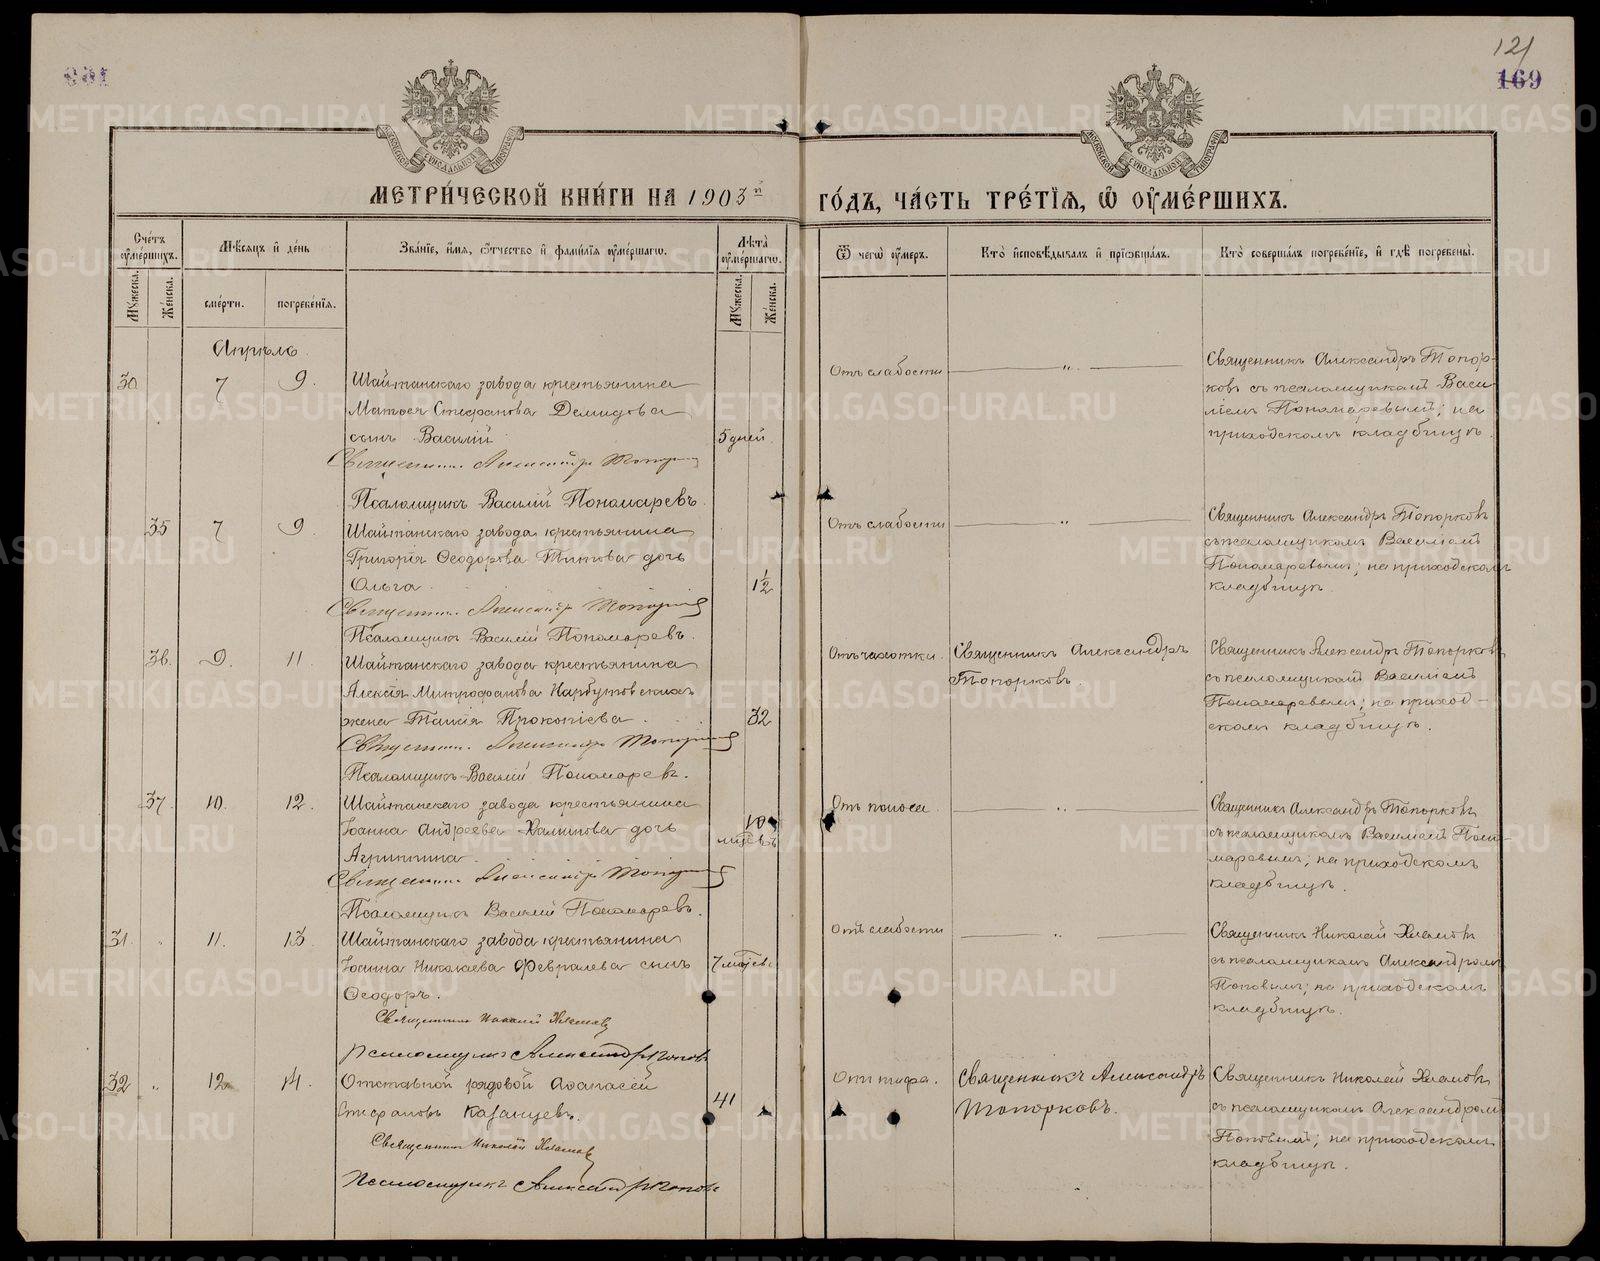 121
169
169
МОСКОВСКОЙ СѴНОДАЛЬНОЙ ТИПОГРАФІИ
МОСКОВСКОЙ СѴНОДАЛЬНОЙ ТИПОГРАФІИ
МЕТРИ́ЧЕСКОЙ КНИ́ГИ НА 1903й ГО́ДЪ, ЧА́СТЬ ТРЕ́ТІѦ, Ѽ ОУ҆МЕ́РШИХЪ.
Сче́тъ оу҆ме́ршихъ.
Мꙋ́жеска.
Же́нска.
Мѣ́сѧцъ и҆ де́нь
сме́рти.
погребе́нїѧ.
Зва́нїе, и҆́мѧ, ѻ҆́тчество и҆ фами́лїѧ оу҆ме́ршагѡ.
Лѣ́та оу҆ме́ршагѡ.
Мꙋ́жеска.
Же́нска.
Ѿ чегѡ̀ оу҆́меръ.
Кто̀ и҆сповѣ́дывалъ и҆ прїѡбща́лъ.
Кто̀ соверша́лъ погребе́нїе, и҆ гдѣ̀ погребены̀.
Апрѣль
30 7 9.
Шайтанскаго завода крестьянина
Матѳея Стефанова Демидова
сынъ Василій 5 дней.
Священникъ Александръ Топорковъ
Псаломщикъ Василій Пономаревъ.
Отъ слабости — „ —
Священникъ Александръ Топор-
ковъ съ псаломщикомъ Васи-
ліемъ Пономаревымъ; на
приходскомъ кладбищѣ.
35 7 9.
Шайтанскаго завода крестьянина
Григорія Ѳеодорова Титова дочь
Ольга. 1½
Священникъ Александръ Топорковъ
Псаломщикъ Василій Пономаревъ.
Отъ слабости — „ —
Священникъ Александръ Топорковъ
съ псаломщикомъ Василіемъ
Пономаревымъ; на приходскомъ
кладбищѣ.
36. 9. 11.
Шайтанскаго завода крестьянина
Алексія Митрофанова Нарбутовскихъ
жена Таисія Прокопіева. 32
Священникъ Александръ Топорковъ
Псаломщикъ Василій Пономаревъ.
Отъ чахотки.
Священникъ Александръ
Топорковъ.
Священникъ Александръ Топорковъ
съ псаломщикомъ Василіемъ
Пономаревымъ; на приход-
скомъ кладбищѣ.
37. 10. 12.
Шайтанскаго завода крестьянина
Іоанна Андреева Халинова дочь
Агриппина. 10 мцевъ
Священникъ Александръ Топорковъ
Псаломщикъ Василій Пономаревъ.
Отъ поноса — „ —
Священникъ Александръ Топорковъ
съ псаломщикомъ Василіемъ Поно-
маревымъ; на приходскомъ
кладбищѣ.
31. „ 11. 13.
Шайтанскаго завода крестьянина
Іоанна Николаева Февралева сынъ 7 мцевъ
Ѳеодоръ.
Священникъ Николай Хламовъ
Псаломщикъ Александръ Поповъ
Отъ слабости — „ —
Священникъ Николай Хламовъ
съ псаломщикомъ Александромъ
Поповымъ; на приходскомъ
кладбищѣ.
32 „ 12 14.
Отставной рядовой Аѳанасій
Стефановъ Казанцевъ. 41
Священникъ Николай Хламовъ
Псаломщикъ Александръ Поповъ
Отъ тифа.
Священникъ Александръ
Топорковъ.
Священникъ Николай Хламовъ
съ псаломщикомъ Александромъ
Поповымъ; на приходскомъ
кладбищѣ.
METRIKI.GASO-URAL.RU